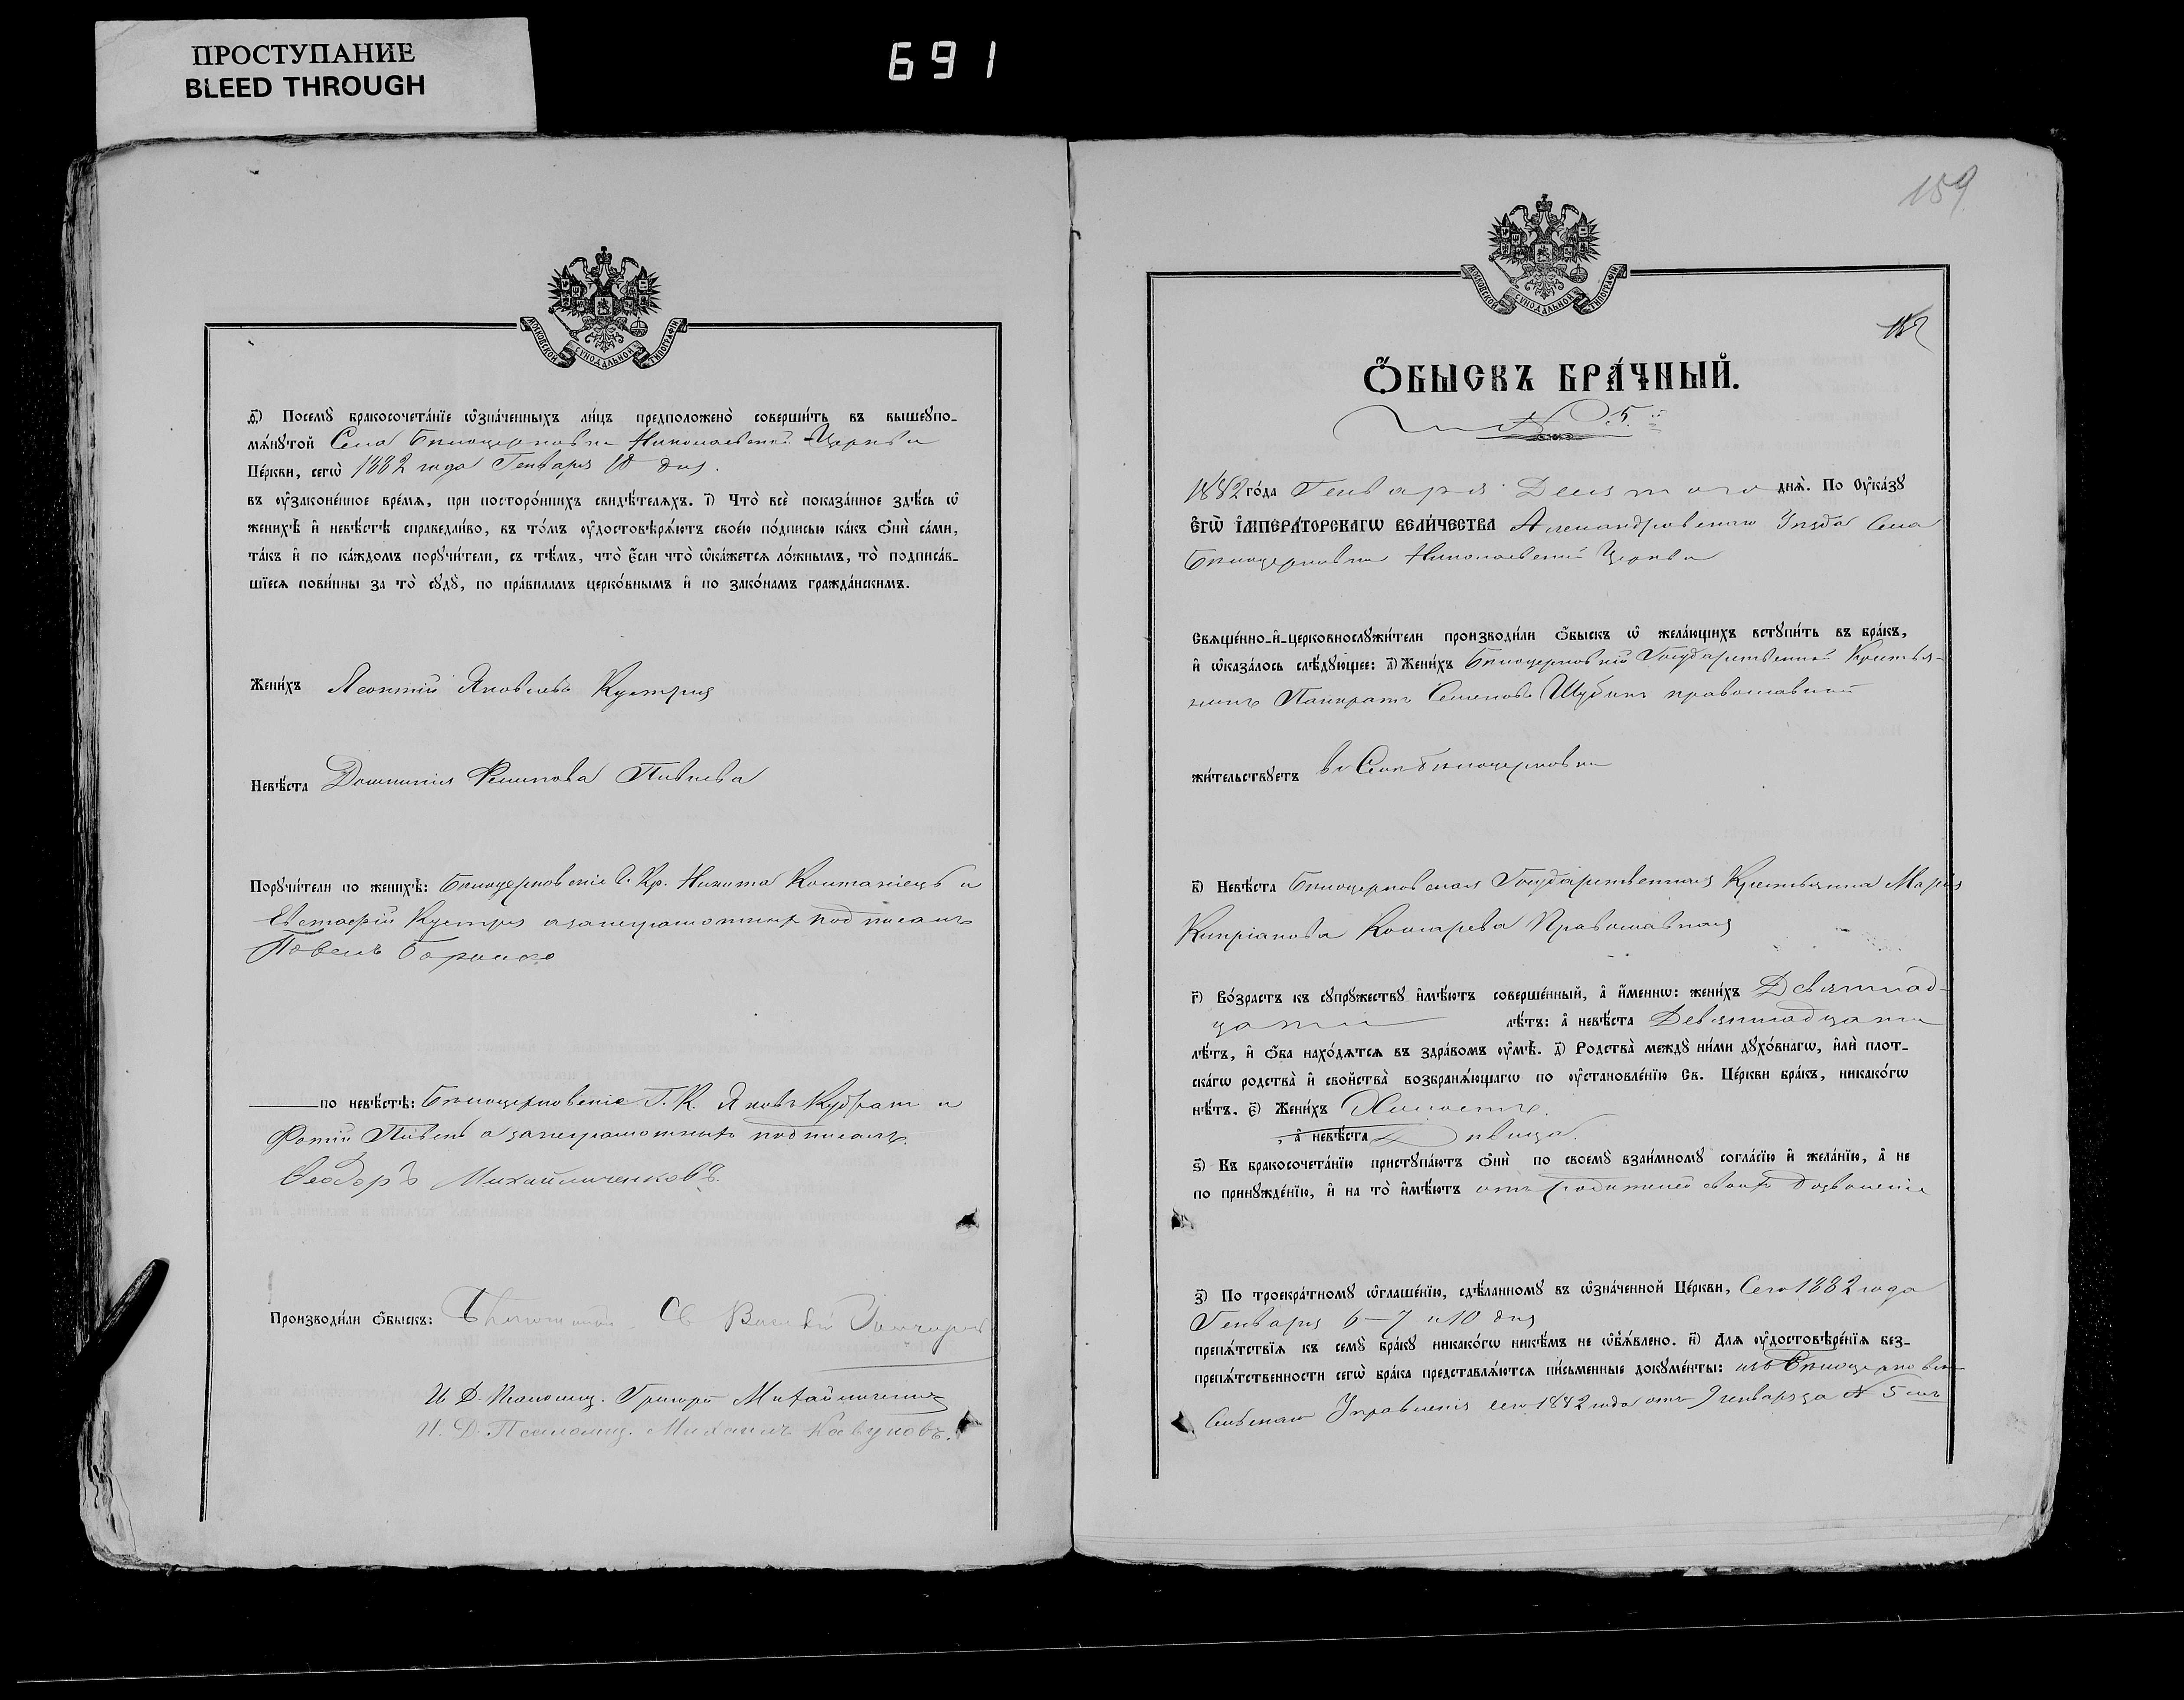 ПРОСТУПАНИЕ
BLEED THROUGH
691
МОСКОВСКОЙ СѴНОДАЛЬНОЙ ТИПОГРАФІИ
д҃і) Посемꙋ̀ бракосочета́нїе ѡ҆зна́ченныхъ ли́цъ предположено̀ соверши́ть въ вышеꙋпо-
мѧ́нꙋтой Села Бѣлоцерковки Николаевской Церкви
Це́ркви, сегѡ̀ 1882 года Генваря 10 дня.
въ ᲂу҆законе́нное вре́мѧ, при посторо́ннихъ свидѣ́телѧхъ. і҃) Что̀ всѐ показа́нное здѣ́сь ѡ҆
женихѣ̀ и҆ невѣ́стѣ справедли́во, въ то́мъ ᲂу҆достовѣрѧ́ютъ свое́ю по́дписью ка́къ ѻ҆нѝ са́ми,
та́къ и҆ по ка́ждомъ порꙋчи́тели, съ тѣ́мъ, что̀ є҆́сли что̀ ѡ҆ка́жетсѧ ло́жнымъ, то̀ подписа́в-
шїесѧ пови́нны за то̀ сꙋдꙋ̀, по пра́виламъ церко́внымъ и҆ по зако́намъ гражда́нскимъ.
Жени́хъ Леонтій Яковлевъ Кустря
Невѣ́ста Домникія Пивнева
Порꙋчи́тели по женихѣ̀: Бѣлоцерковскіе Г. Кр. Никита и
Евстафій Кустря а за неграмотныхъ подписалъ
Павелъ
по невѣ́стѣ: Бѣлоцерковскіе Г. К. Яковъ и
Фотій Пивень а за неграмотныхъ подписалъ
Ѳеодоръ Михайличенковъ.
Производи́ли ѻ҆́быскъ: Св Василій Гончаровъ
И. Д. Псаломщ. Григорій Михайличенко
И. Д. Псаломщ. Михаилъ Кавуновъ.
159
МОСКОВСКОЙ СѴНОДАЛЬНОЙ ТИПОГРАФІИ
Ѻ҆́БЫСКЪ БРА́ЧНЫЙ.
№ 5.
1882 го́да Генваря Десятого днѧ̀. По Оу҆ка́зꙋ
Є҆гѡ̀ И҆мпера́торскагѡ вели́чества Александровскаго Уѣзда Села
Бѣлоцерковки Николаевской Церкви
Свѧще́нно-и҆-церковнослꙋжи́тели производи́ли ѻ҆́быскъ ѡ҆ жела́ющихъ встꙋпи́ть въ бра́къ,
и҆ ѡ҆каза́лось слѣ́дꙋющее: а҃) Жени́хъ Бѣлоцерковскій Государственный Крестья-
нинъ Панкратъ Семеновъ Шубинъ православный
жи́тельствꙋетъ въ Селѣ Бѣлоцерковкѣ
в҃) Невѣ́ста Бѣлоцерковская Государственная Крестьянка Марія
Кипріанова Кошарева Православная
г҃) Во́зрастъ къ сꙋпрꙋ́жествꙋ и҆мѣ́ютъ соверше́нный, а҆ и҆́меннѡ: жени́хъ Девятнад-
цати лѣ́тъ: а҆ невѣ́ста Девятнадцати
лѣ́тъ, и҆ ѻ҆́ба нахо́дѧтсѧ въ здра́вомъ ᲂу҆мѣ̀. д҃) Родства̀ междꙋ̀ ни́ми дꙋхо́внагѡ, и҆лѝ плот-
ска́гѡ родства̀ и҆ сво́йства̀ возбранѧ́ющагѡ по ᲂу҆становле́нїю Св. Це́ркви бра́къ, никако́гѡ
нѣ́тъ. є҃) Жени́хъ Холостъ.
, а҆ невѣ́ста Дѣвица.
ѕ҃) Къ бракосочета́нїю пристꙋпа́ютъ ѻ҆нѝ по своемꙋ̀ взаи́мномꙋ согла́сїю и҆ жела́нїю, а҆ не
по принꙋжде́нїю, и҆ на то̀ и҆мѣ́ютъ отъ родителей своихъ дозволеніе
з҃) По троекра́тномꙋ ѡ҆глаше́нїю, сдѣ́ланномꙋ въ ѡ҆зна́ченной Це́ркви, Сего 1882 года
Генваря 6-7 и 10 дня
препѧ́тствїѧ къ семꙋ̀ бра́кꙋ никако́гѡ никѣ́мъ не ѡ҆б̾ѧ́влено. и҃) Длѧ ᲂу҆достовѣре́нїѧ без-
препѧ́тственности сегѡ̀ бра́ка представлѧ́ютсѧ пи́сьменные докꙋме́нты: изъ Бѣлоцерковскаго
Сельскаго Управленія сего 1882 года отъ генваря за № 5